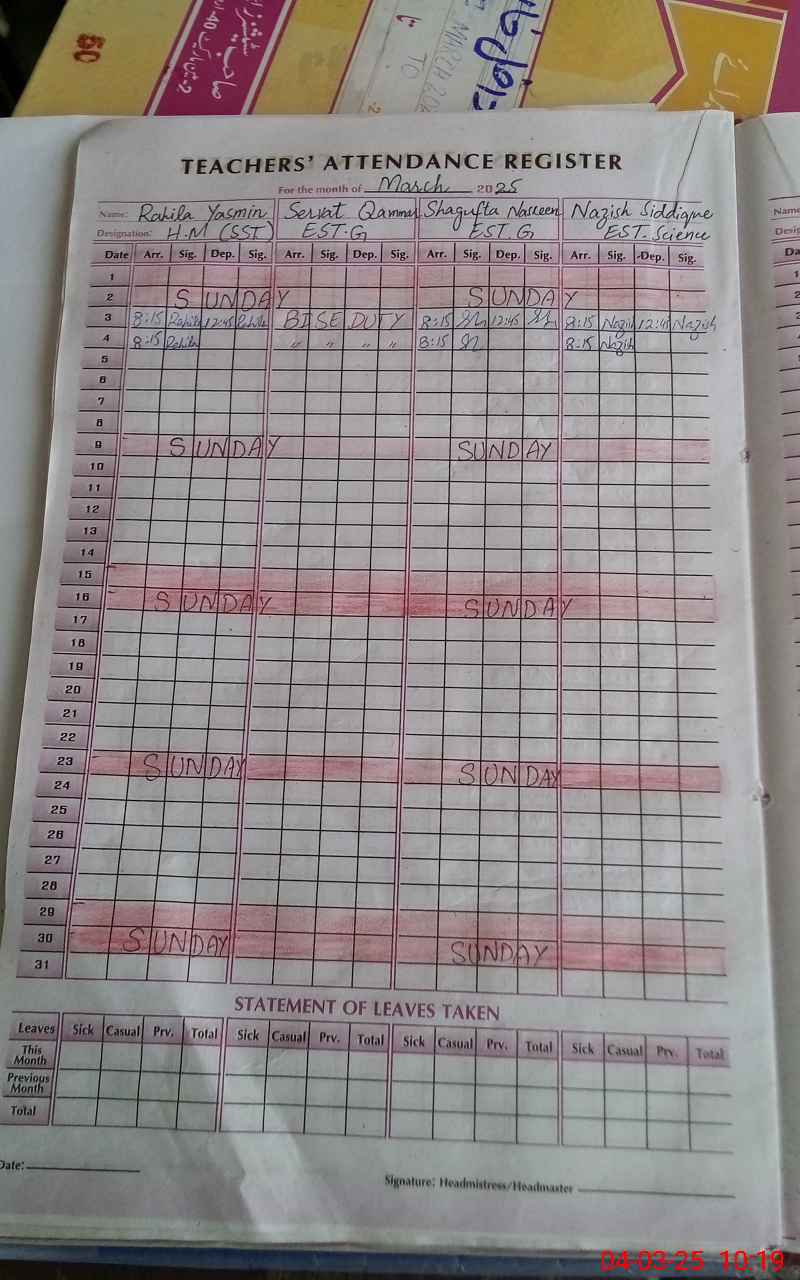 50
MARCH
TO
TEACHERS' ATTENDANCE REGISTER
For the month of March 2025
Name: Rahila Yasmin Servat Qammar Shagufta Nasreen Nazish Siddique
Designation: H.M (SST) EST.G EST.G EST.Science
Date Arr. Sig. Dep. Sig. Arr. Sig. Dep. Sig. Arr. Sig. Dep. Sig. Arr. Sig. Dep. Sig.
1
2 SUNDAY SUNDAY
3 8:15 Rahila 12:45 Rahila BISE DUTY 8:15 12:45 8:15 Nazish 12:45 Nazish
4 8:15 Rahila " " " " 8:15 8:15 Nazish
5
6
7
8
9 SUNDAY SUNDAY
10
11
12
13
14
15
16 SUNDAY SUNDAY
17
18
19
20
21
22
23 SUNDAY SUNDAY
24
25
26
27
28
29
30 SUNDAY SUNDAY
31
STATEMENT OF LEAVES TAKEN
Leaves Sick Casual Prv. Total Sick Casual Prv. Total Sick Casual Prv. Total Sick Casual Prv. Total
This Month
Previous Month
Total
Date:
Signature: Headmistress/Headmaster
04-03-25 10:19